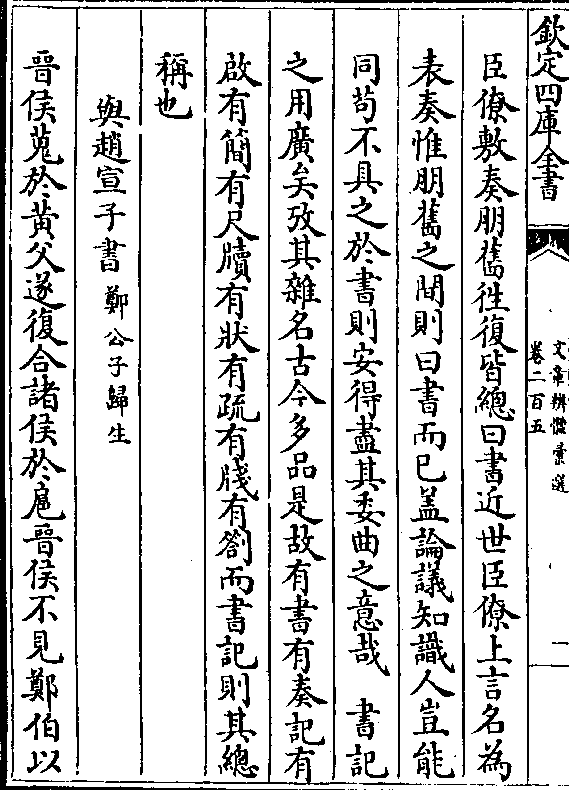 欽定四庫全書
文章辨體彙選
卷二百五
一
臣僚敷奏朋舊徃復皆總曰書近世臣僚上言名為
表奏惟朋舊之間則曰書而已盖論議知識人豈能
同苟不具之於書則安得盡其委曲之意哉　書記
之用廣矣攷其雜名古今多品是故有書有奏記有
啟有簡有尺牘有狀有疏有牋有劄而書記則其總
稱也
與趙宣子書　鄭公子歸生
晉侯蒐於黃父遂復合諸侯於扈晉侯不見鄭伯以